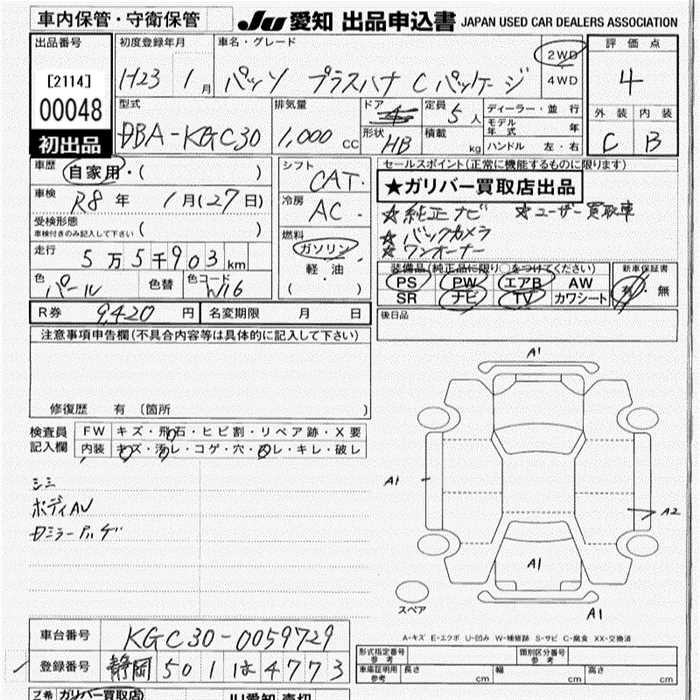 車内保管・守衛保管
JU 愛知 出品申込書 JAPAN USED CAR DEALERS ASSOCIATION
出品番号
[2114]
00048
初出品
初度登録年月
H23 年 1月
車名・グレード
パッソ プラスハナ Cパッケージ
2WD
4WD
評価点
4
外装 内装
C B
型式
DBA-KGC30
排気量
1,000 cc
ドア
形状 HB
定員 5人
積載 kg
ディーラー・並行
モデル年式 年
ハンドル 左・右
車歴 自家用・( )
車検 R8年 1月(27日)
受検形態
車検付きのみ記入して下さい ( )
走行 5万5千903km
色 パール
色替
色コード W16
シフト
CAT.
冷房
AC.
燃料
ガソリン
軽・油
( )
セールスポイント(正常に機能するものに限ります)
★ガリバー買取店出品
☆純正ナビ ☆ユーザー買取車
☆バックカメラ
☆ワンオーナー
装備品(純正品に限り○をつけてください)
PS PW エアB AW
SR ナビ TV カワシート
新車保証書
有・無
R券 9,420円 名変期限 月 日
後日品
注意事項申告欄(不具合内容等は具体的に記入して下さい)
修復歴 有 (箇所 )
検査員記入欄
FW キズ・飛石・ヒビ割・リペア跡・X要
内装 キズ・汚レ・コゲ・穴・スレ・キレ・破レ
シミ
ボディAU
A1
A1
A2
A1
A1
スペア
A-キズ E-エクボ U-凹み W-補修跡 S-サビ C-腐食 XX-交換済
車台番号 KGC30-0059729
登録番号 静岡 501 は 4773
形式指定番号 参考
類別区分番号 参考
車庫証明用 参考 長さ cm 幅 cm 高さ cm
ガリバー買取店)
JU愛知